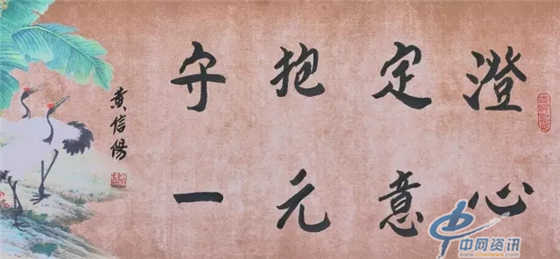 澄心
定意
抱元
守一
黄信陽
中网资讯